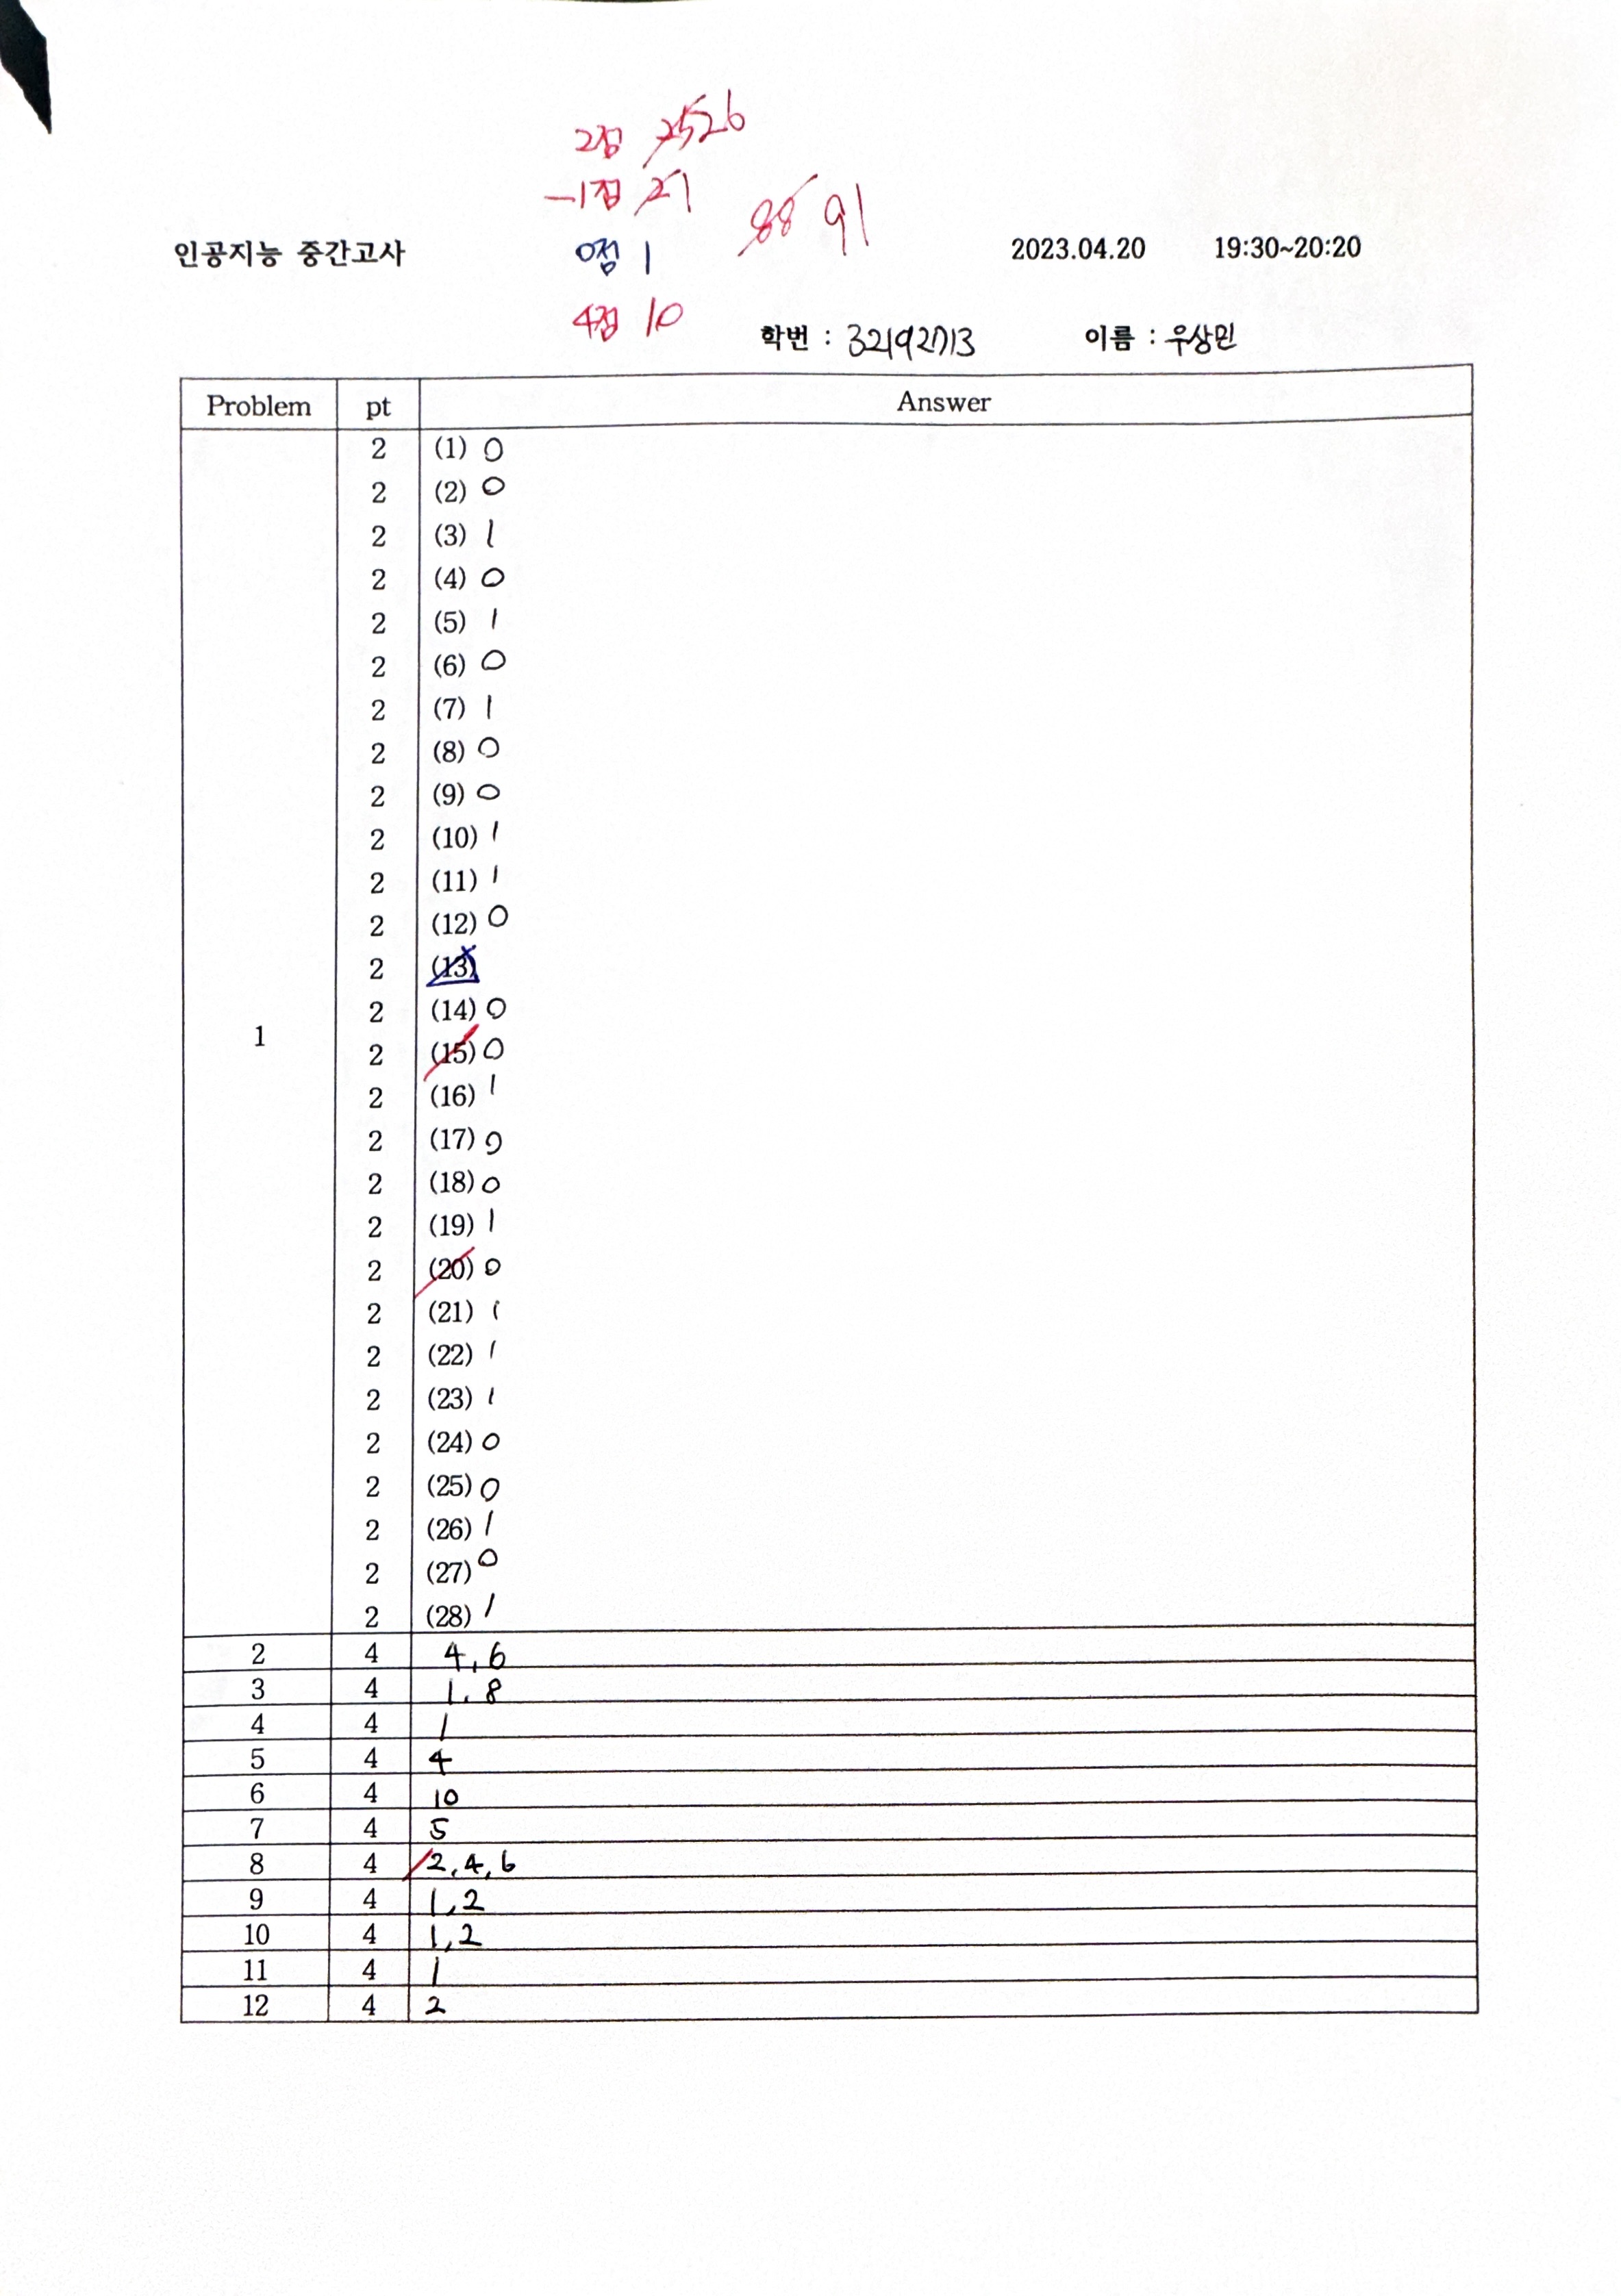 2점 25 26
-1점 2 1
인공지능 중간고사 0점 1 88 91 2023.04.20 19:30~20:20
4점 10
학번 : 32192713 이름 : 우상민
Problem pt Answer
2 (1) 0
2 (2) 0
2 (3) 1
2 (4) 0
2 (5) 1
2 (6) 0
2 (7) 1
2 (8) 0
2 (9) 0
2 (10) 1
2 (11) 1
2 (12) 0
2 (13)
2 (14) 0
1
2 (15) 0
2 (16) 1
2 (17) 0
2 (18) 0
2 (19) 1
2 (20) 0
2 (21) 1
2 (22) 1
2 (23) 1
2 (24) 0
2 (25) 0
2 (26) 1
2 (27) 0
2 (28) 1
2 4 4, 6
3 4 1, 8
4 4 1
5 4 4
6 4 10
7 4 5
8 4 2, 4, 6
9 4 1, 2
10 4 1, 2
11 4 1
12 4 2